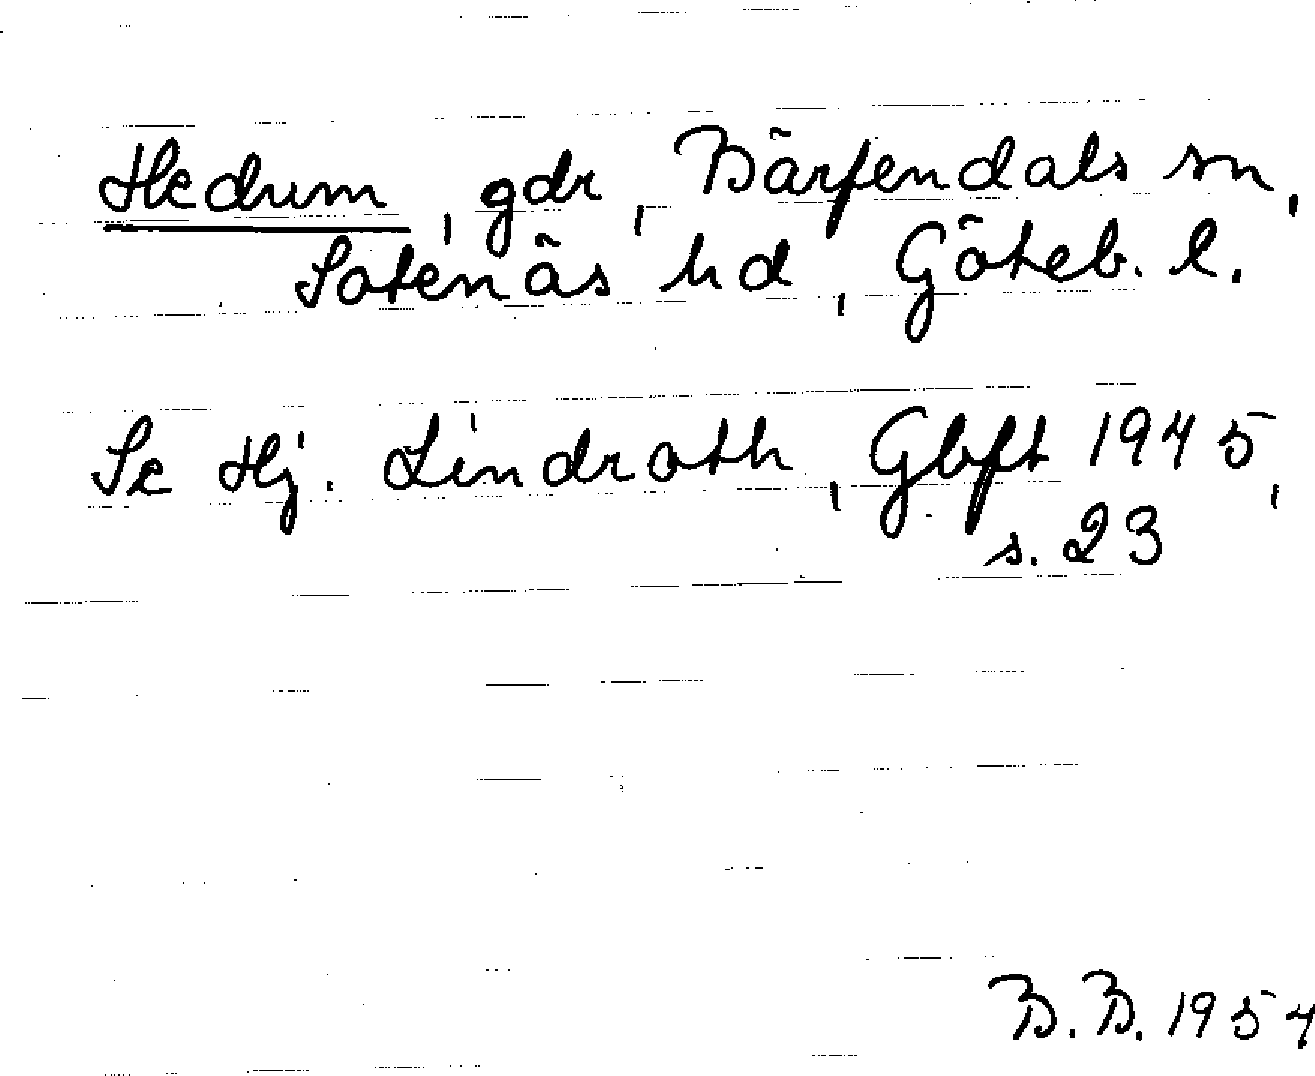 Hedum, gdr, Bärfendals sn,
Sotenäs hd, Göteb. l.
Se Hj. Lindroth, Gbft 1945,
s. 23
B.B. 1954